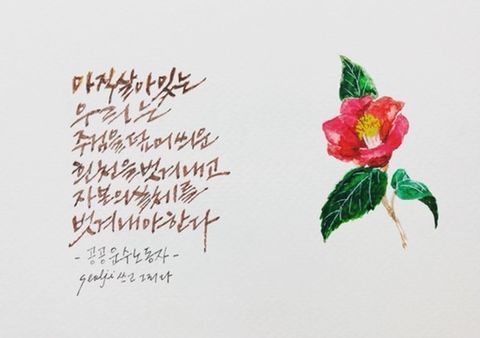 아직 살아있는
우리는
주검을 덮어씌운
흰 천을 벗겨내고
자본의 실체를
벗겨내야 한다
- 공공운수노동자 -
쓰고 그리다